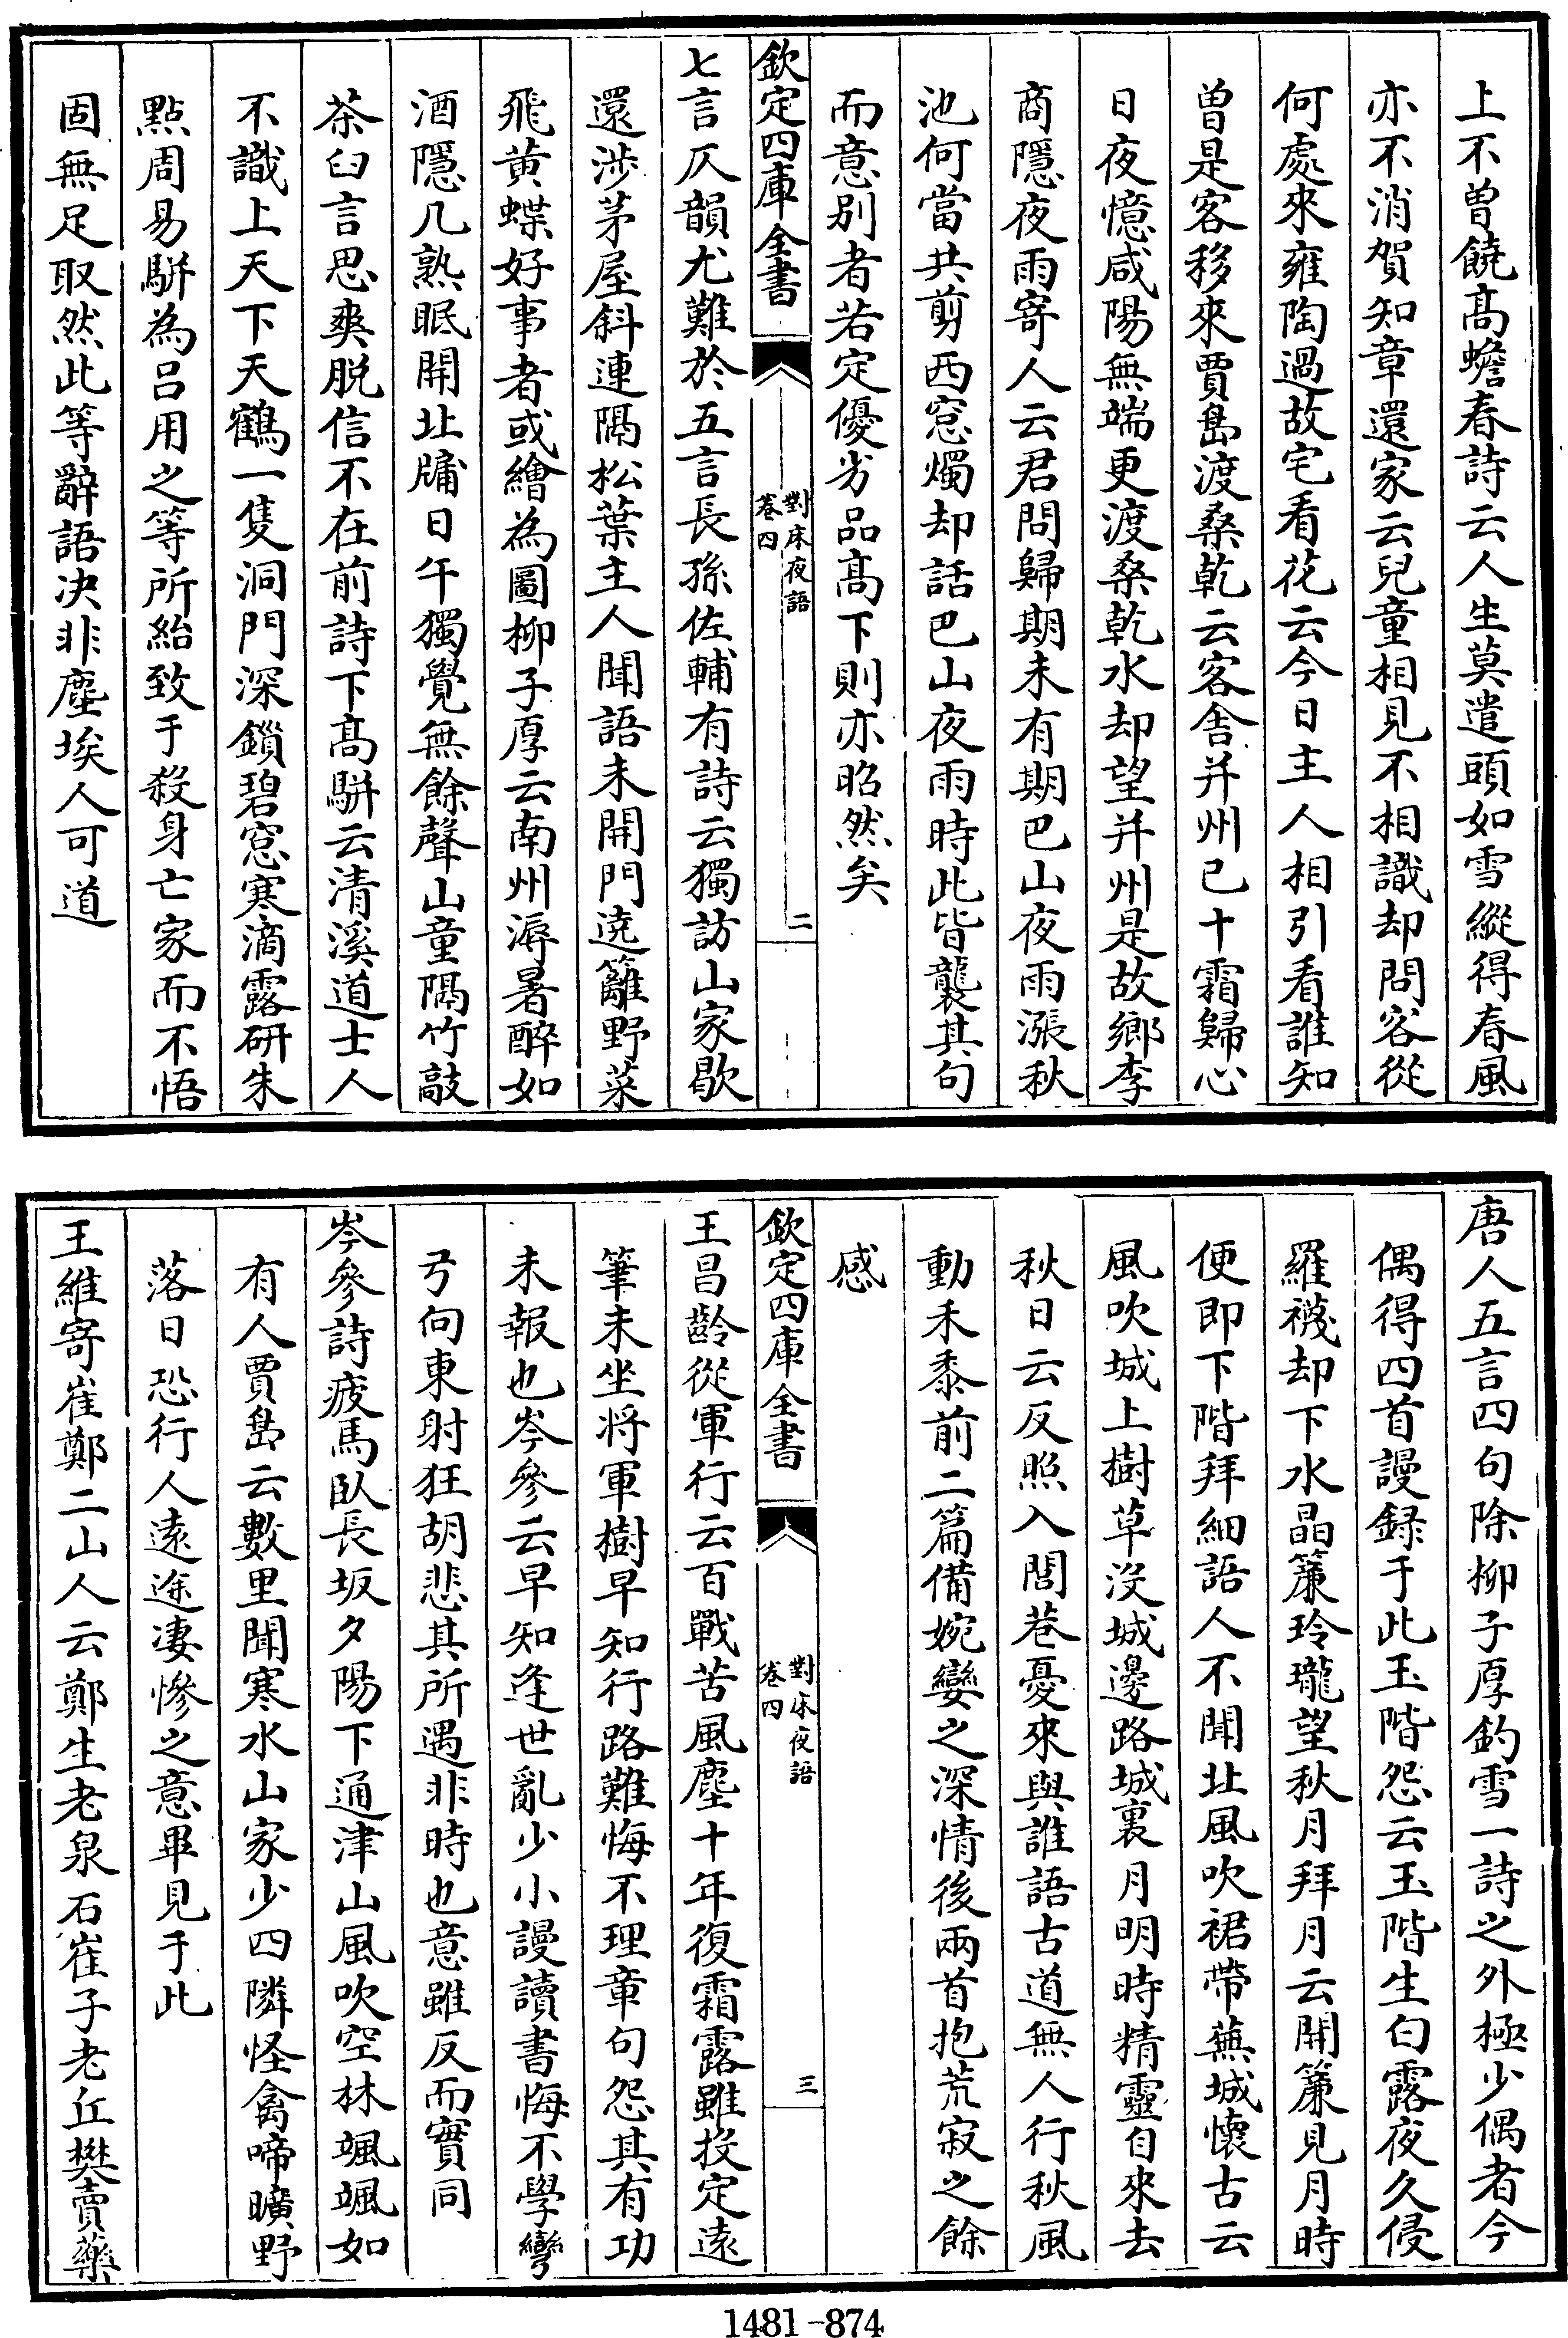 上不曽饒髙蟾春詩云人生莫遣頭如雪縱得春風
亦不消賀知章還家云兒童相見不相識却問客從
何處來雍陶過故宅看花云今日主人相引看誰知
曽是客移來賈島渡桑乾云客舎并州已十霜歸心
日夜憶咸陽無端更渡桑乾水却望并州是故鄉李
商隱夜雨寄人云君問歸期未有期巴山夜雨漲秋
池何當共剪西窓燭却話巴山夜雨時此皆襲其句
而意别者若定優劣品髙下則亦昭然矣
欽定四庫全書
對床夜語
卷四
二
七言仄韻尤難於五言長孫佐輔有詩云獨訪山家歇
還渉茅屋斜連隔松葉主人聞語未開門遶籬野菜
飛黄蝶好事者或繪為圖柳子厚云南州溽暑醉如
酒隱几熟眠開北牖日午獨覺無餘聲山童隔竹敲
茶臼言思爽脱信不在前詩下髙駢云清溪道士人
不識上天下天鶴一隻洞門深鎖碧窓寒滴露研朱
點周易駢為吕用之等所紿致于殺身亡家而不悟
固無足取然此等辭語决非塵埃人可道
唐人五言四句除柳子厚釣雪一詩之外極少偶者今
偶得四首謾録于此玉階怨云玉階生白露夜久侵
羅襪却下水晶簾玲瓏望秋月拜月云開簾見月時
便即下階拜細語人不聞北風吹裙帶蕪城懐古云
風吹城上樹草沒城邊路城裏月明時精靈自來去
秋日云反照入閭巷憂來與誰語古道無人行秋風
動禾黍前二篇備婉孌之深情後兩首抱荒寂之餘
感
欽定四庫全書
對床夜語
卷四
三
王昌齡從軍行云百戰苦風塵十年復霜露雖投定遠
筆未坐将軍樹早知行路難悔不理章句怨其有功
未報也岑參云早知逢世亂少小謾讀書悔不學彎
弓向東射狂胡悲其所遇非時也意雖反而實同
岑參詩疲馬臥長坂夕陽下通津山風吹空林颯颯如
有人賈島云數里聞寒水山家少四隣怪禽啼曠野
落日恐行人遠途凄慘之意畢見于此
王維寄崔鄭二山人云鄭生老泉石崔子老丘樊賣藥
1481-874